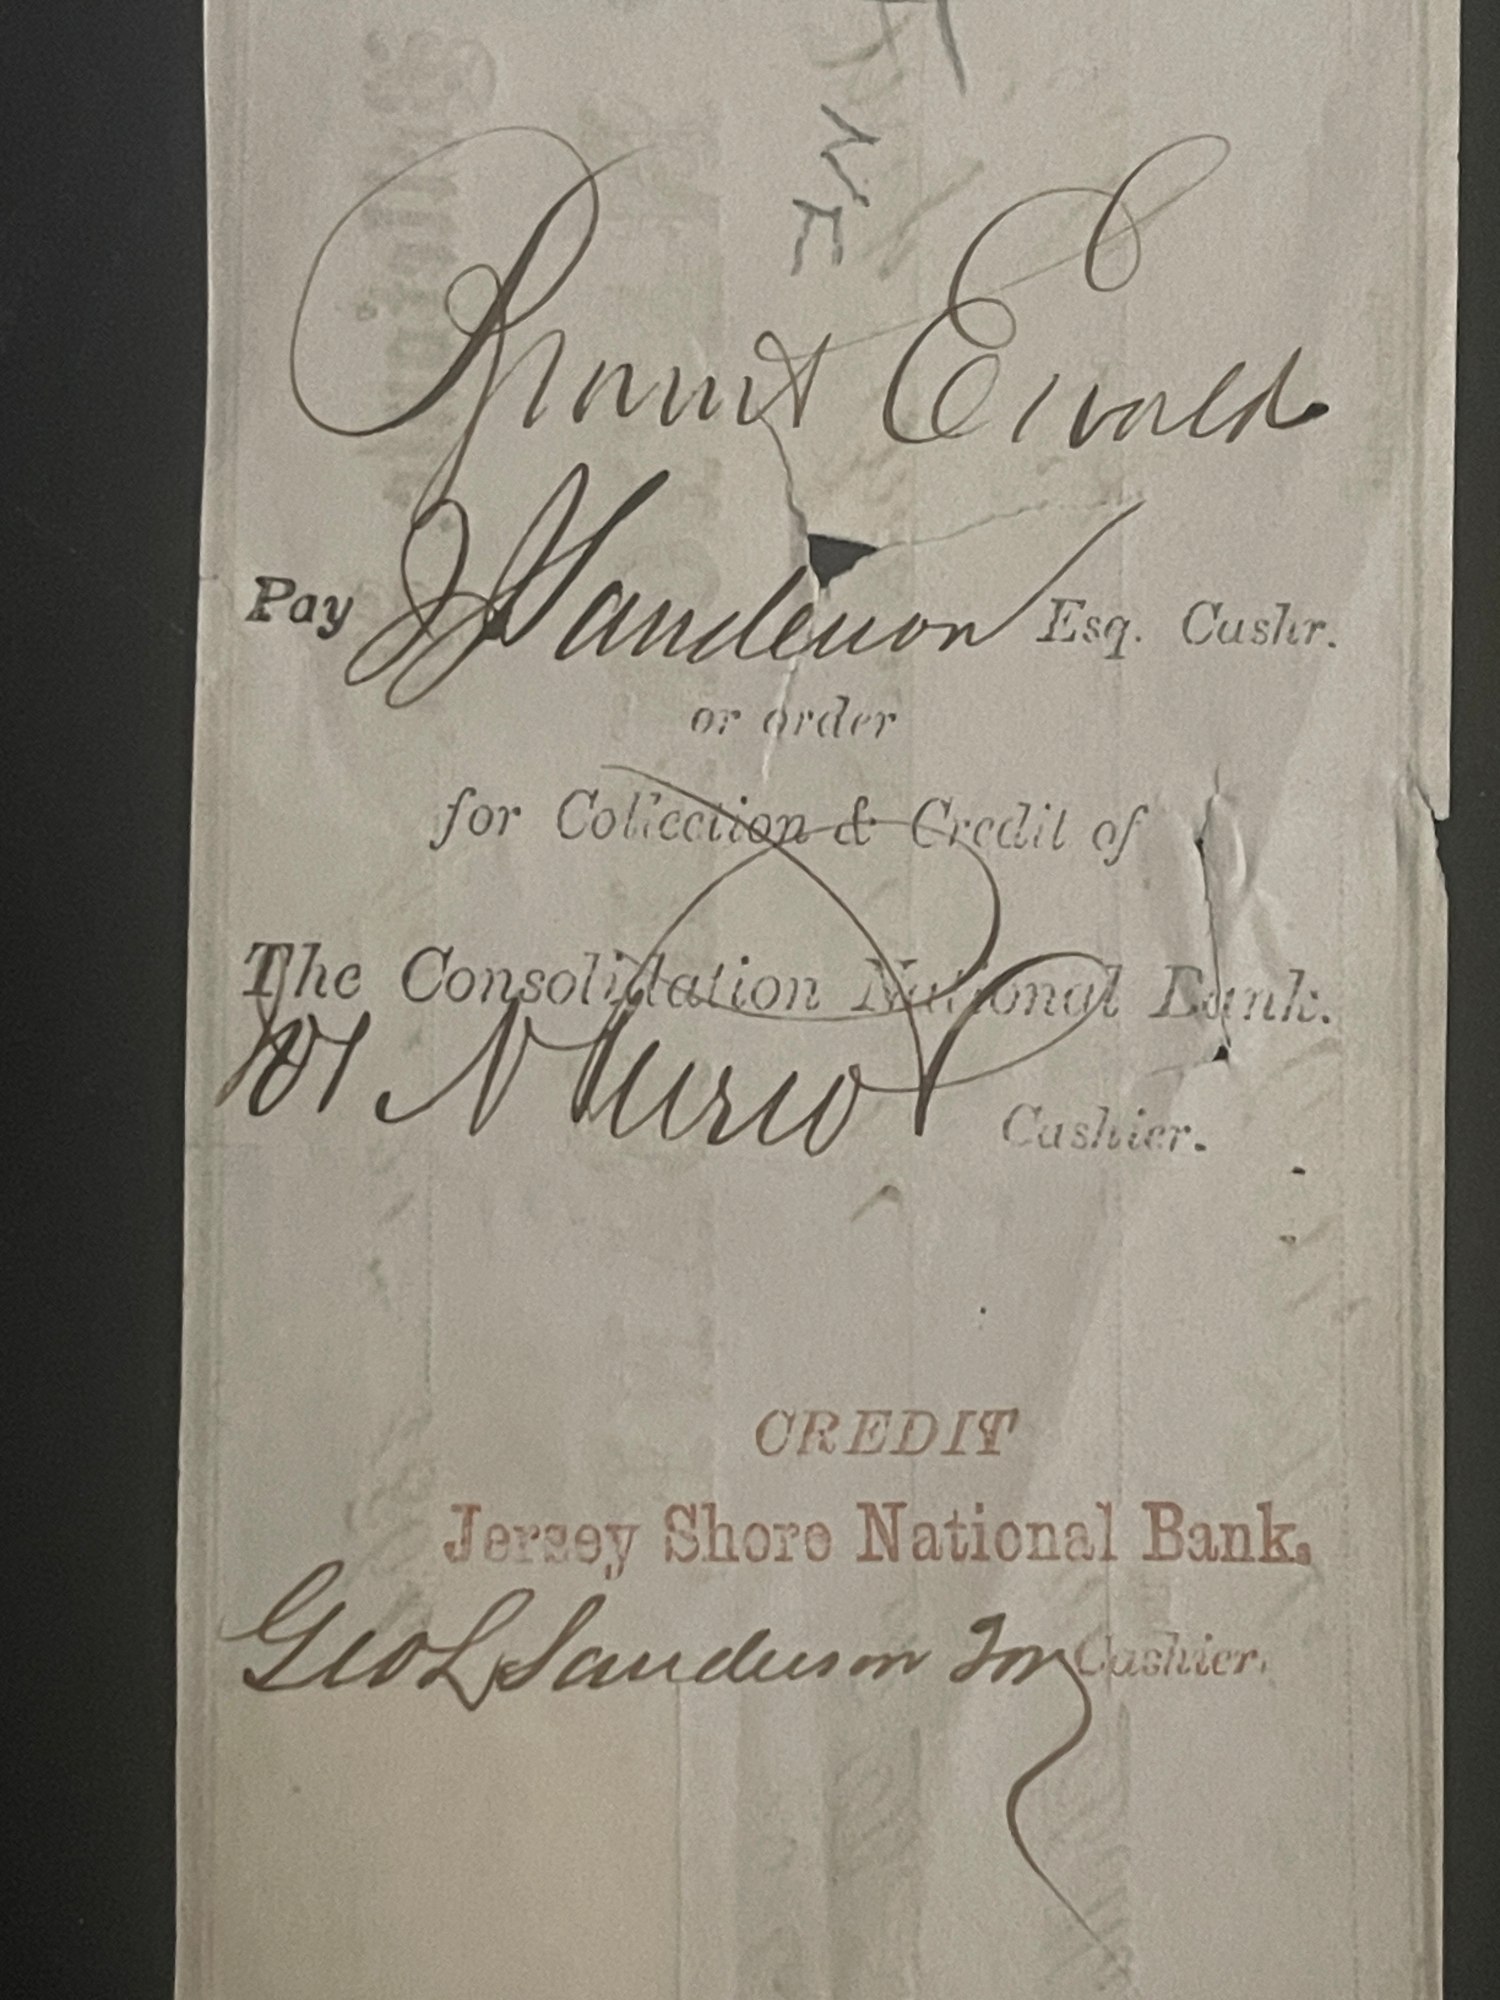 N.F
Ewald
Pay J Sanderson Esq. Cashr.
or order
for Collection & Credit of
The Consolidation National Bank.
Cashier.
CREDIT
Jersey Shore National Bank.
Geo L Sanderson Cashier.